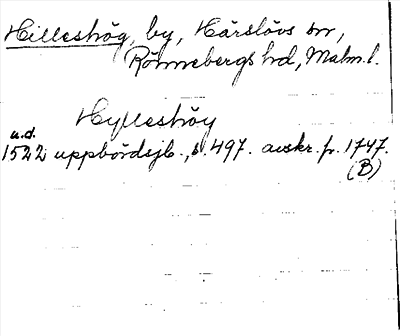 Hilleshög, by, Härslövs sn,
Rönnebergs hd, Malm. l.
Hylleshöy
u.d.
1522 uppbördsjb., s. 497. avskr. fr. 1747.
(B)